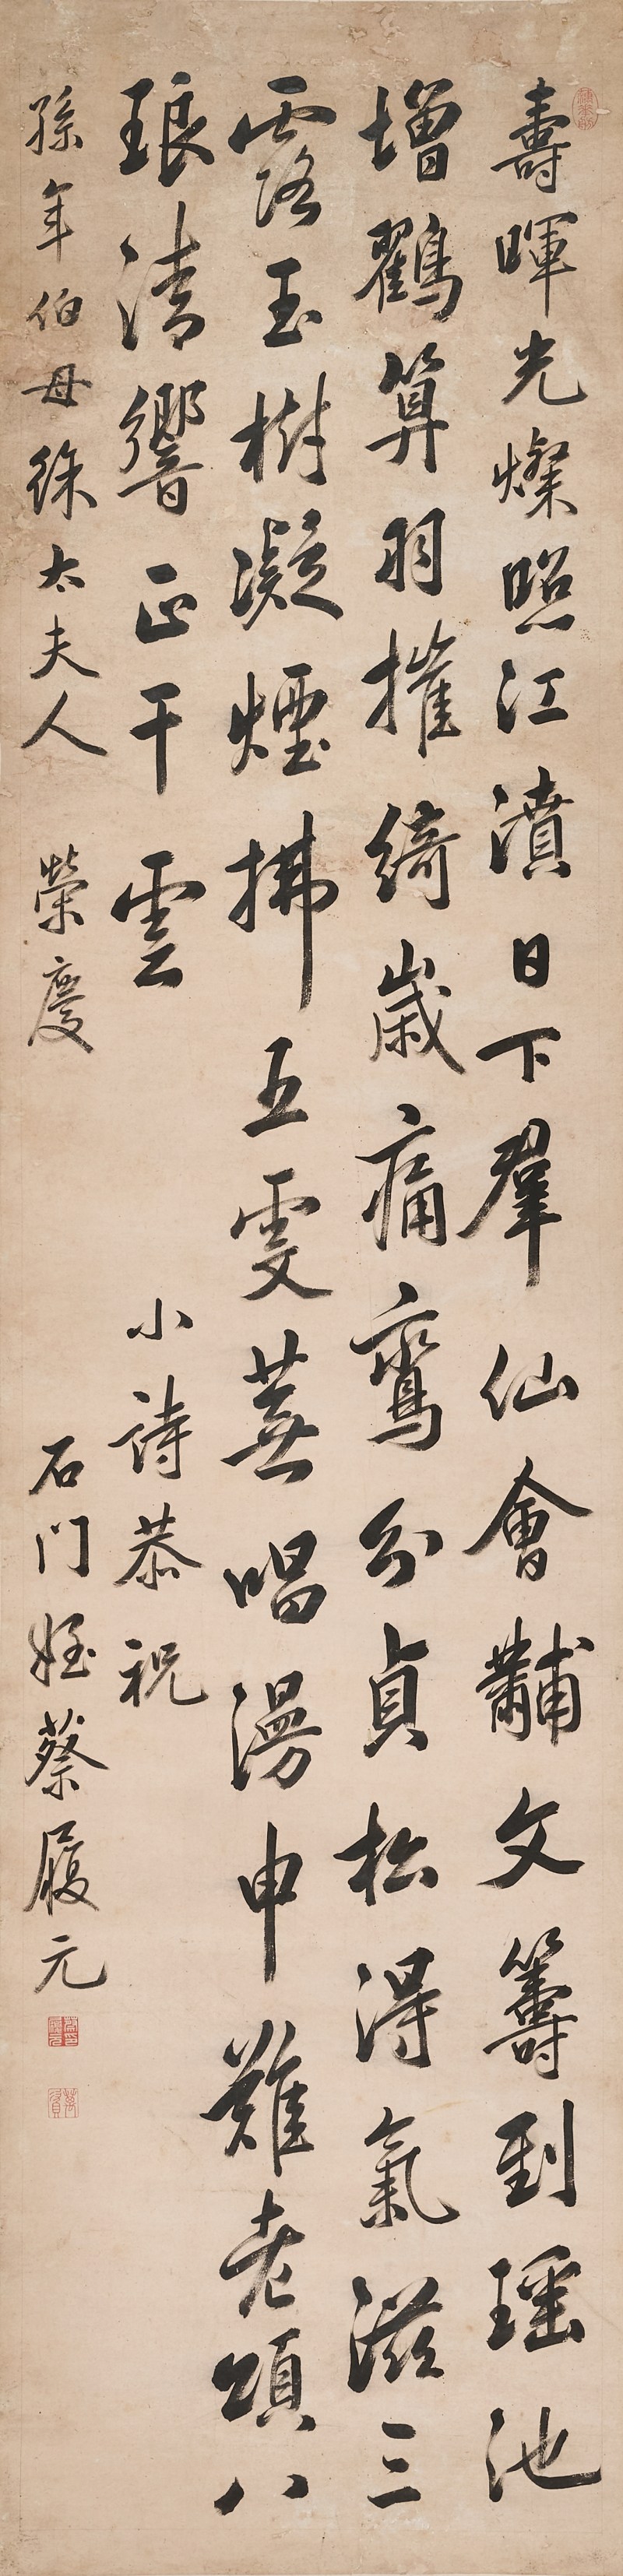 壽暉光燦照江濆日下羣仙會黼文籌到瑶池
增鶴算羽摧綺歲痛鸞分貞松得氣滋三
露玉樹凝煙拂五雯蕪唱漫申難老頌八
琅清響正干雲
小詩恭祝
孫年伯母徐太夫人
榮慶
石門姪蔡履元